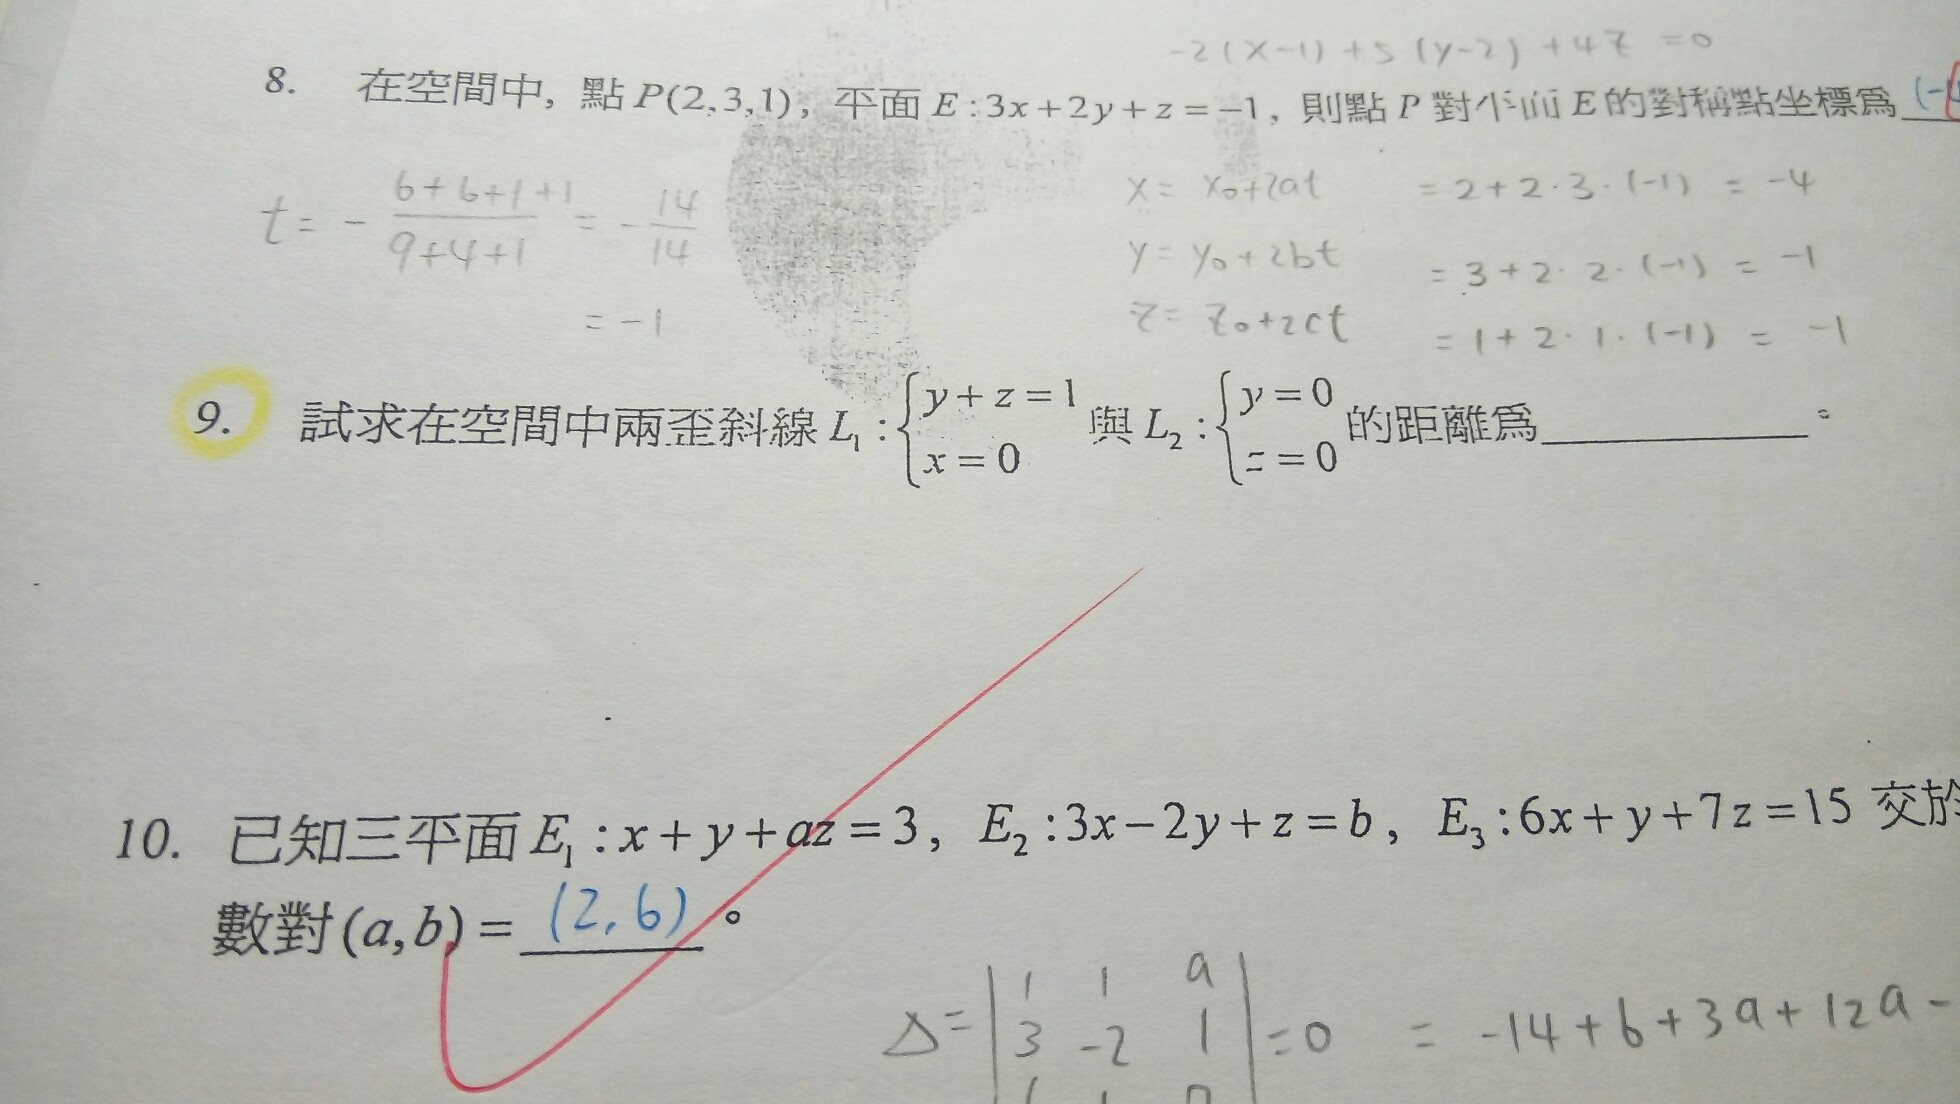 -2(x-1)+5(y-2)+4z=0
8. 在空間中, 點P(2,3,1), 平面E:3x+2y+z=-1, 則點P對平面E的對稱點坐標為 (-4
t= - (6+6+1+1)/(9+4+1) = - 14/14
= -1
x= x₀+2at = 2+2·3·(-1) = -4
y= y₀+2bt = 3+2·2·(-1) = -1
z= z₀+2ct = 1+2·1·(-1) = -1
9. 試求在空間中兩歪斜線L₁:{y+z=1 x=0 與L₂:{y=0 z=0 的距離為________。
10. 已知三平面E₁:x+y+az=3, E₂:3x-2y+z=b, E₃:6x+y+7z=15 交於
數對(a,b)= (2,6)。
Δ= | 1 1 a
3 -2 1 | =0 = -14+6+3a+12a-